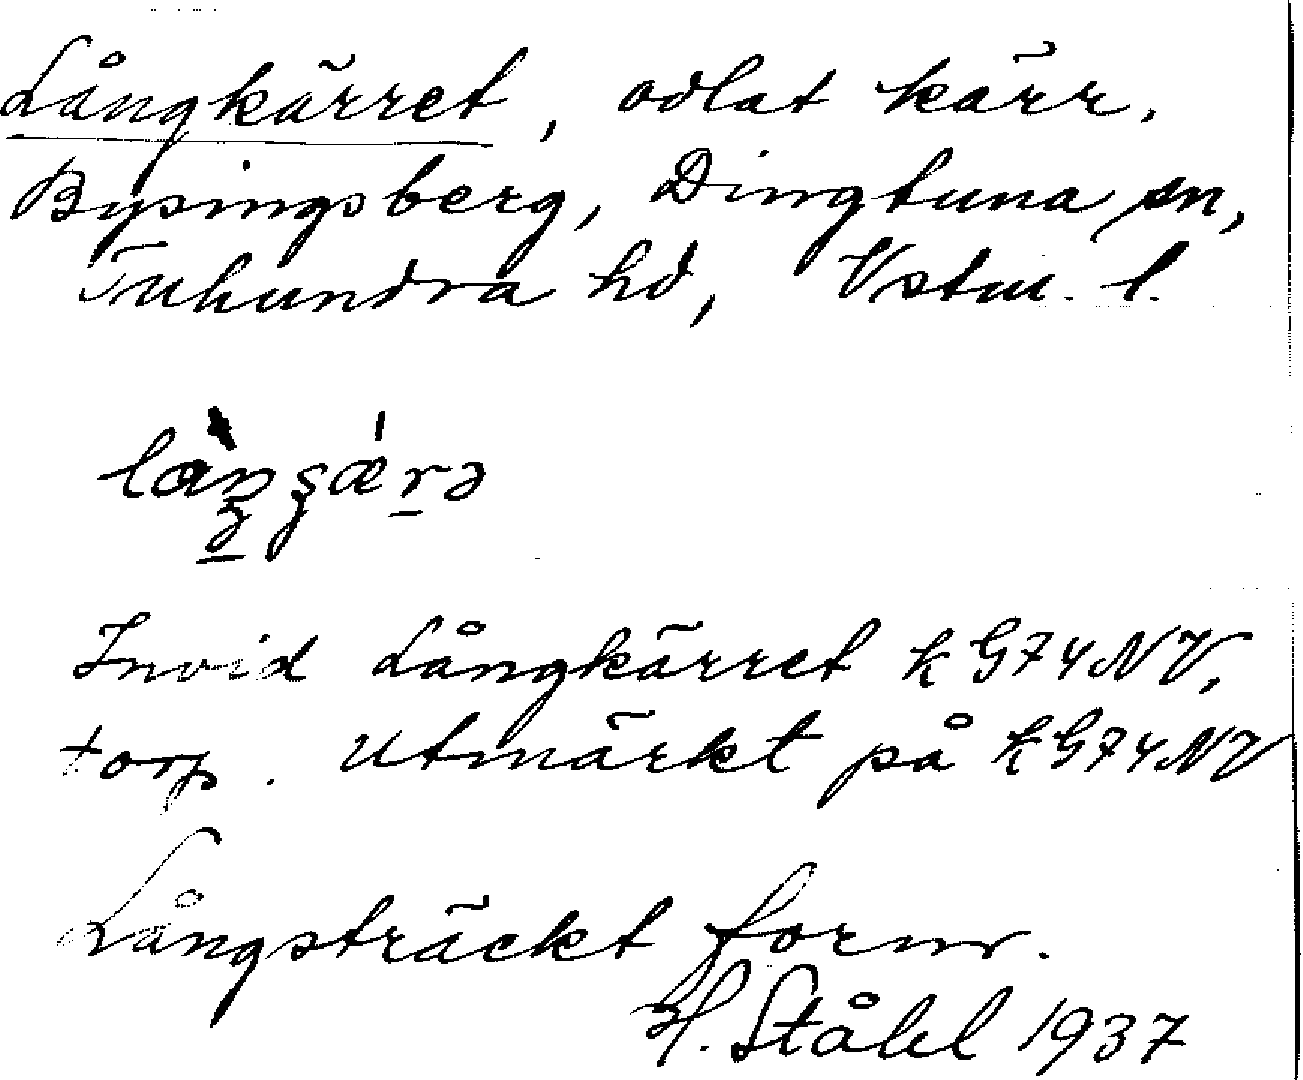 Långkärret, odlat kärr.
Bysingsberg, Dingtuna sn,
Tuhundra hd, Vstm. l.
Invid Långkärret k G74NV,
torp. Utmärkt på k G74NV
Långsträckt form.
H. Ståhl 1937